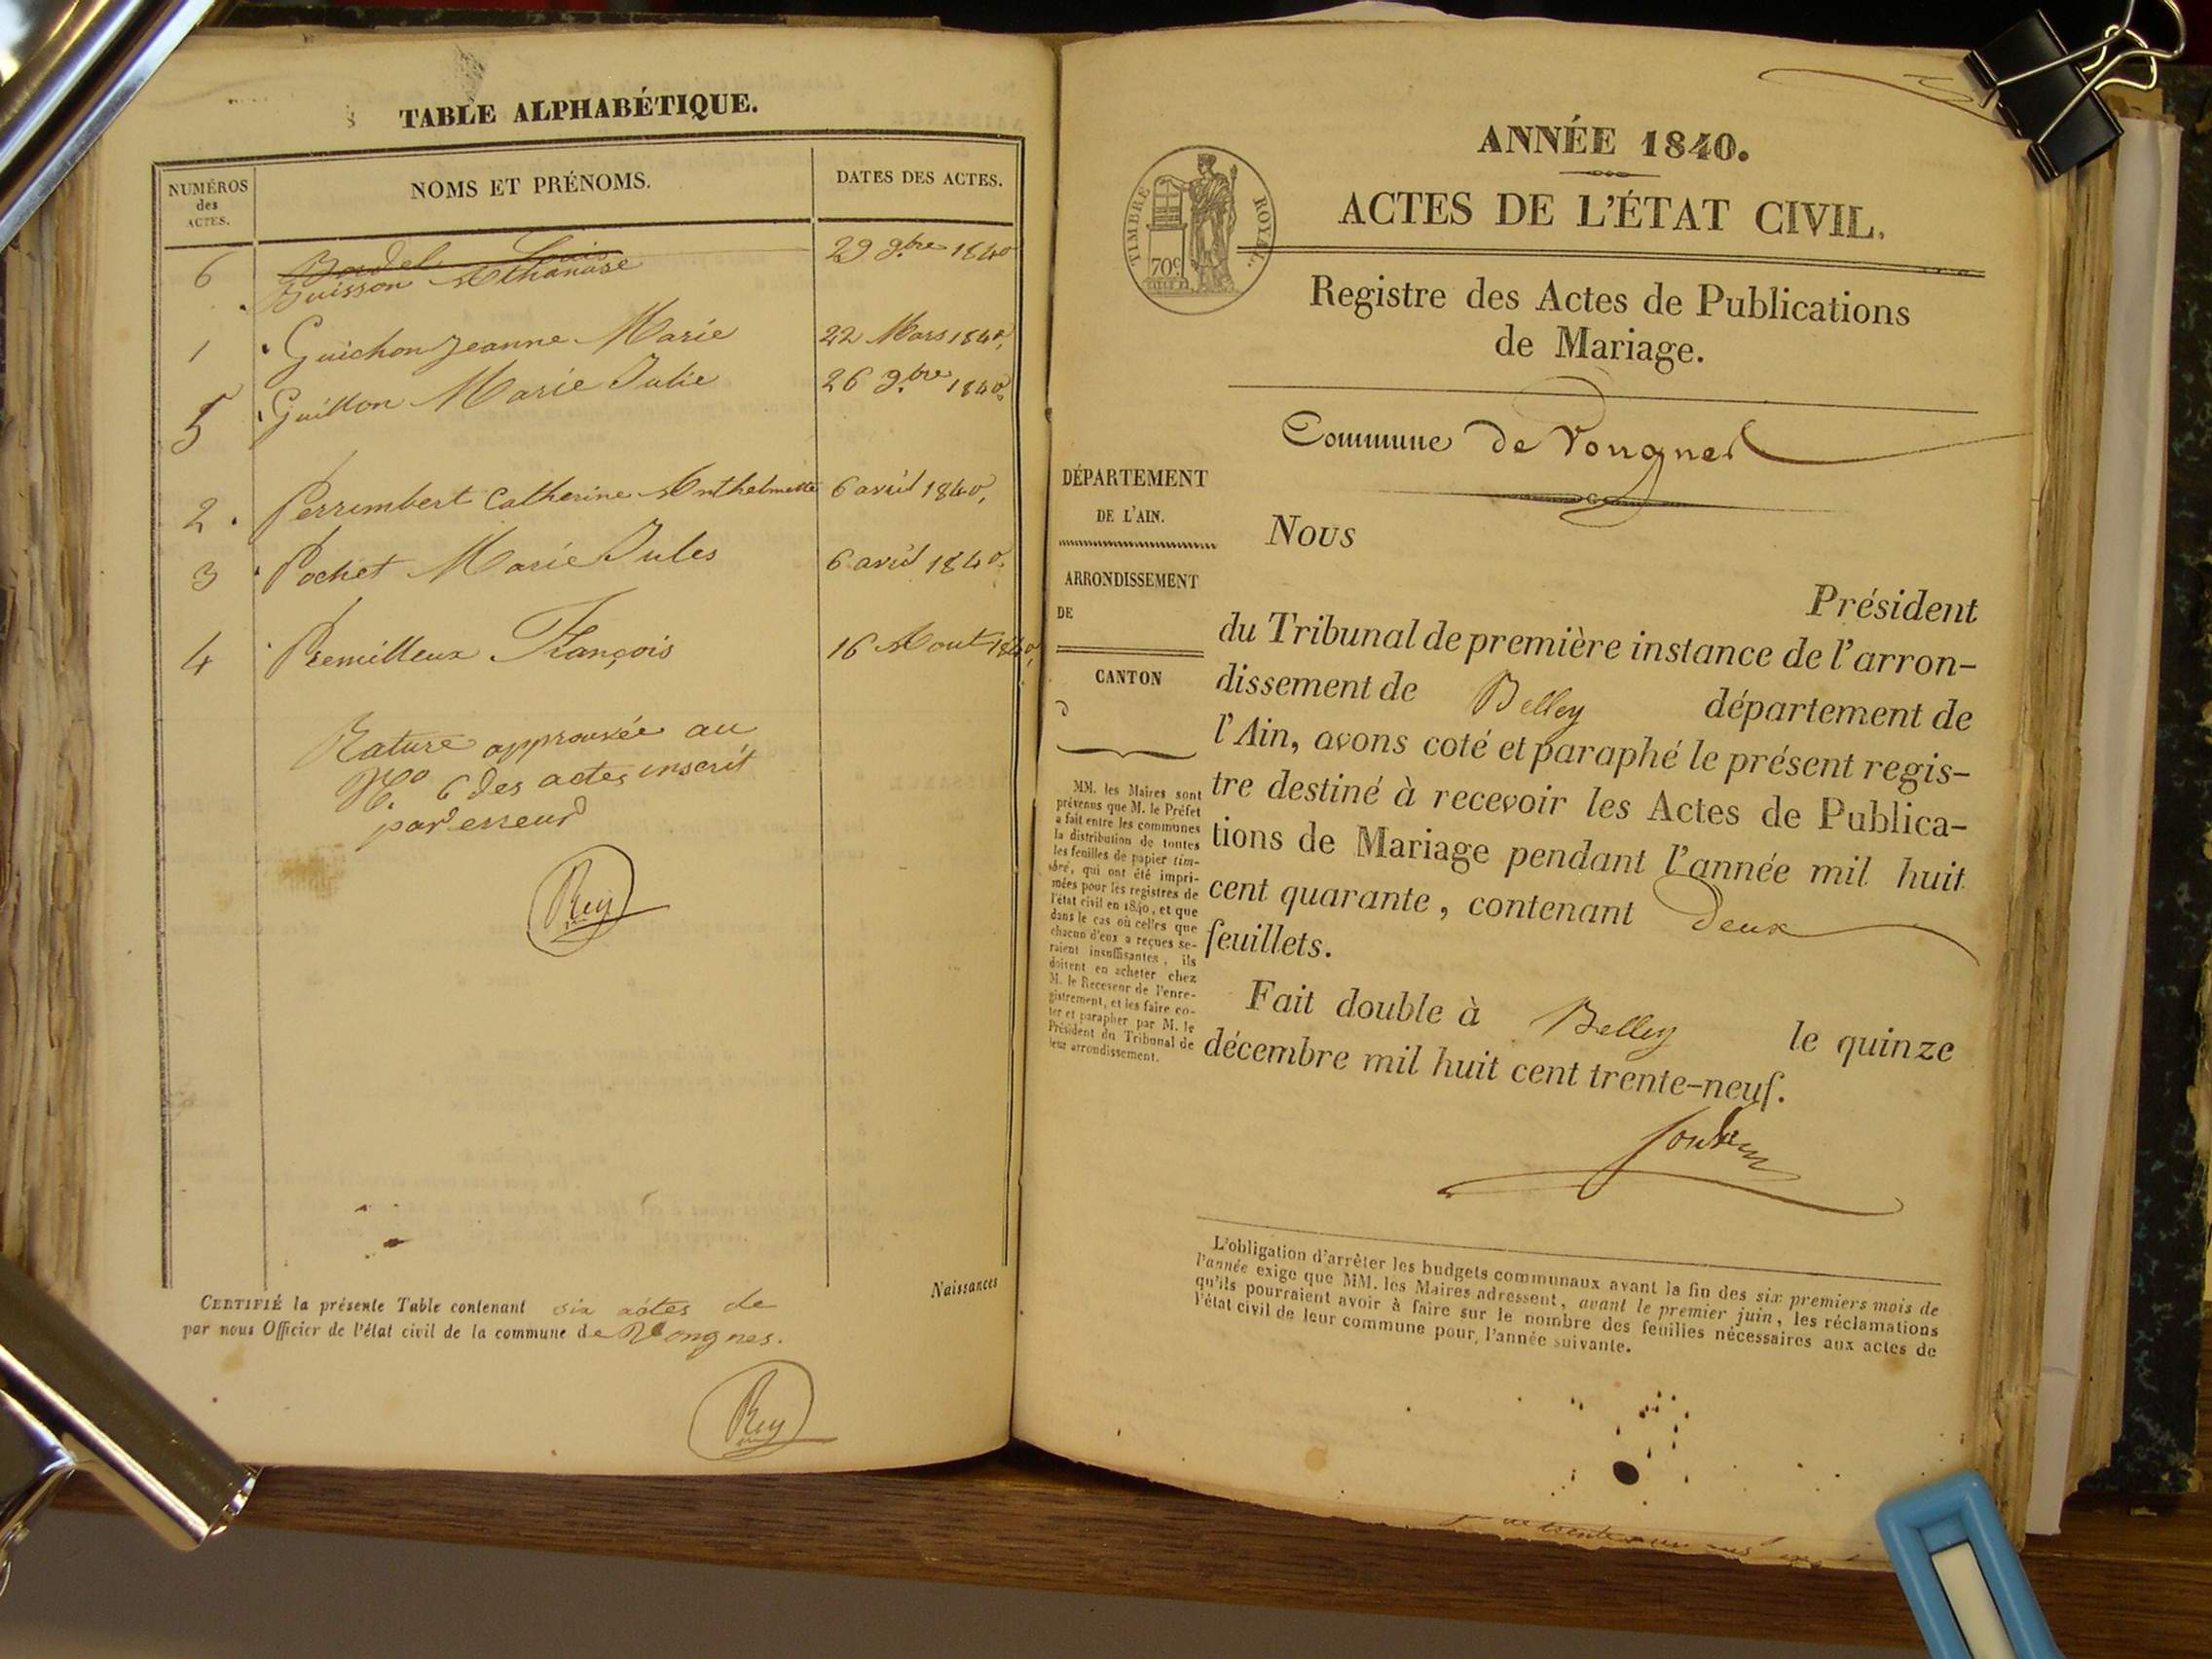 TABLE ALPHABÉTIQUE.
NUMÉROS
des
ACTES.
NOMS ET PRÉNOMS.
DATES DES ACTES.
6 Bordel Louis 29 9.bre 1840
Buisson Athanase
1 Guichon Jeanne Marie 22 Mars 1840,
5 Guillon Marie Julie 26 9.bre 1840.
2 Perrimbert Catherine Anthelmette 6 avril 1840,
3 Pochet Marie Jules 6 avril 1840.
4 Premilleux François 16 Aout 1840,
Rature approuvée au
No 6 des actes inscrit
par erreur
Rey
CERTIFIÉ la présente Table contenant six actes de
par nous Officier de l'état civil de la commune de Vongnes.
Rey
Naissances
ANNÉE 1840.
TIMBRE ROYAL.
70c
ACTES DE L'ÉTAT CIVIL.
Registre des Actes de Publications
de Mariage.
Commune de Vongnes
DÉPARTEMENT
DE L'AIN.
ARRONDISSEMENT
DE
CANTON
MM. les Maires sont
prévenus que M. le Préfet
a fait entre les communes
la distribution de toutes
les feuilles de papier tim-
bré, qui ont été impri-
mées pour les registres de
l'état civil en 1840, et que
dans le cas où celles que
chacun d'eux a reçues se-
raient insuffisantes, ils
doivent en acheter chez
M. le Receveur de l'enre-
gistrement, et les faire co-
ter et parapher par M. le
Président du Tribunal de
leur arrondissement.
Nous
Président
du Tribunal de première instance de l'arron-
dissement de Belley département de
l'Ain, avons coté et paraphé le présent regis-
tre destiné à recevoir les Actes de Publica-
tions de Mariage pendant l'année mil huit
cent quarante, contenant deux
feuillets.
Fait double à Belley le quinze
décembre mil huit cent trente-neuf.
L'obligation d'arrêter les budgets communaux avant la fin des six premiers mois de
l'année exige que MM. les Maires adressent, avant le premier juin, les réclamations
qu'ils pourraient avoir à faire sur le nombre des feuilles nécessaires aux actes de
l'état civil de leur commune pour l'année suivante.